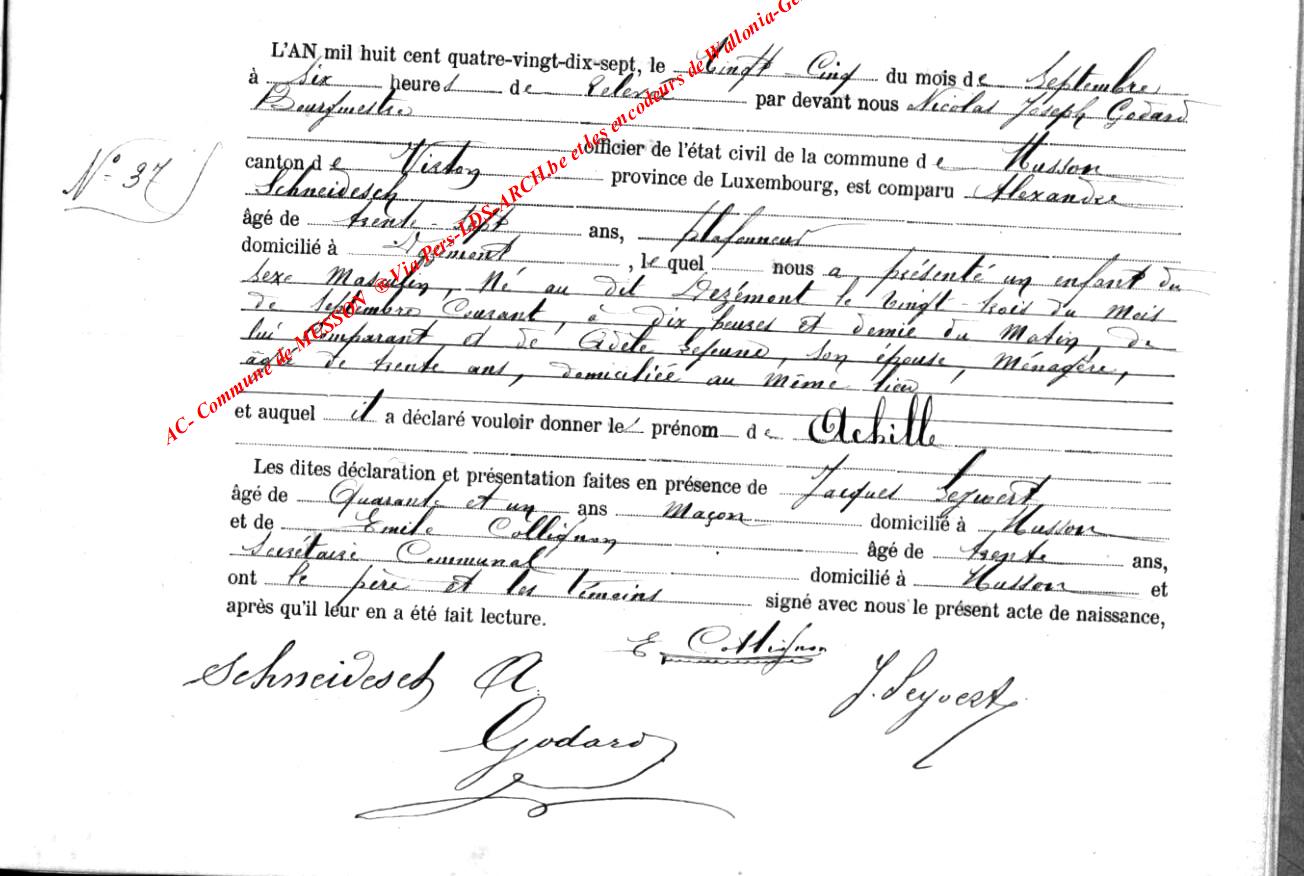 L'AN mil huit cent quatre-vingt-dix-sept, le Vingt-Cinq du mois de Septembre
à six heures de relevée par devant nous Nicolas Joseph Godard
Bourgmestre
officier de l'état civil de la commune de Musson
N° 37
canton de Virton province de Luxembourg, est comparu Alexandre
Schneidesch
âgé de trente-sept ans, plafonneur
domicilié à , le quel nous a présenté un enfant du
sexe Masculin, Né au dit le vingt-trois du Mois
de Septembre Courant, à dix heures et demie du Matin, de
lui Comparant, et de Adèle Lejeune, son épouse, Ménagère,
âgée de trente ans, domiciliée au même lieu
et auquel il a déclaré vouloir donner le prénom de Achille
Les dites déclaration et présentation faites en présence de Jacques
âgé de Quarante et un ans Maçon domicilié à Musson
et de Emile Collignon âgé de trente ans,
Secrétaire Communal domicilié à Musson et
ont le père et les témoins signé avec nous le présent acte de naissance,
après qu'il leur en a été fait lecture.
E Collignon
Schneidesch A.
J.
Godard
AC- Commune de MUSSON ® Via Pers-LDS-ARCH.be et les encodeurs de Wallonia-Ge